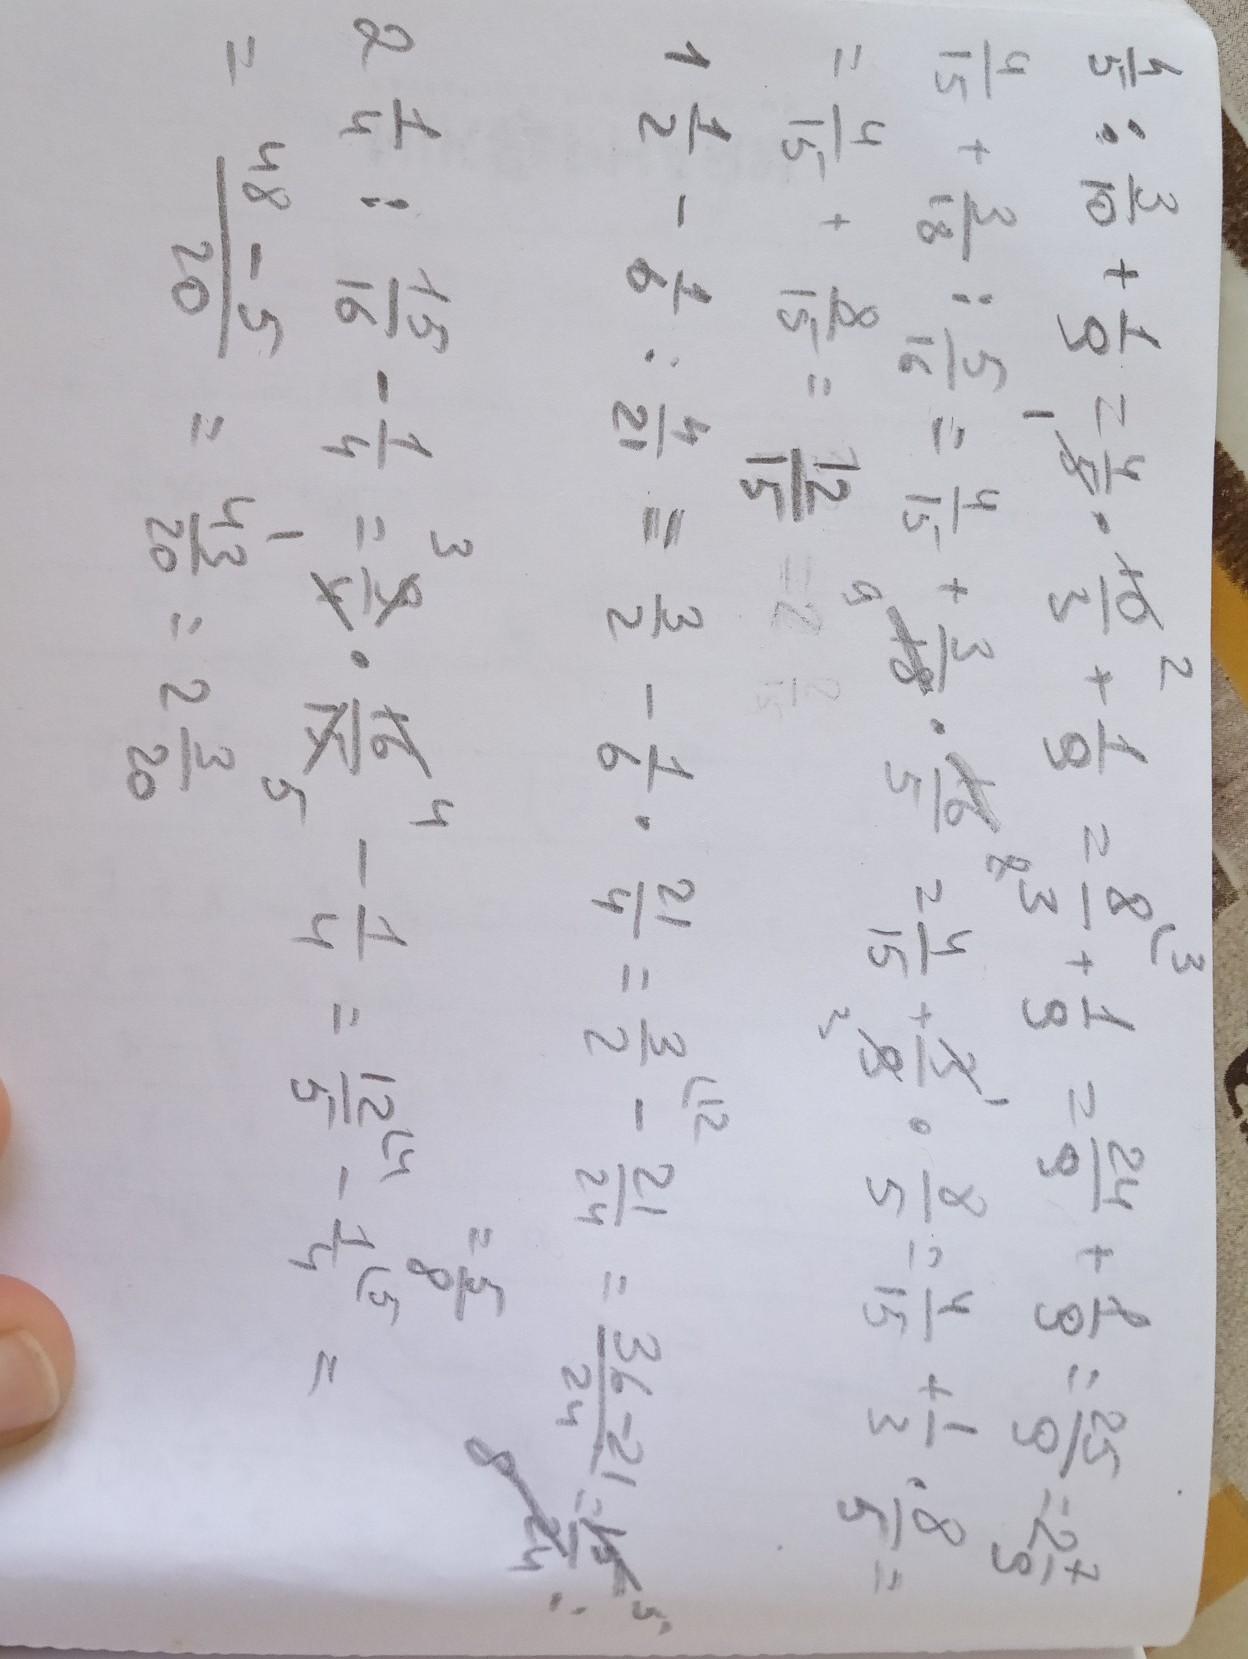 4/5 : 3/10 + 1/9 = 4/5 · 10/3 + 1/9 = 8/3 + 1/9 = 24/9 + 1/9 = 25/9 = 2 7/9
4/15 + 3/18 : 5/16 = 4/15 + 3/18 · 16/5 = 4/15 + 3/9 · 8/5 = 4/15 + 1/3 · 8/5 =
= 4/15 + 8/15 = 12/15
1 1/2 - 1/6 : 4/21 = 3/2 - 1/6 · 21/4 = 3/2 - 21/24 = 36-21/24 = 15/24 = 5/8
2 1/4 : 15/16 - 1/4 = 9/4 · 16/15 - 1/4 = 12/5 - 1/4 =
= 48-5/20 = 43/20 = 2 3/20